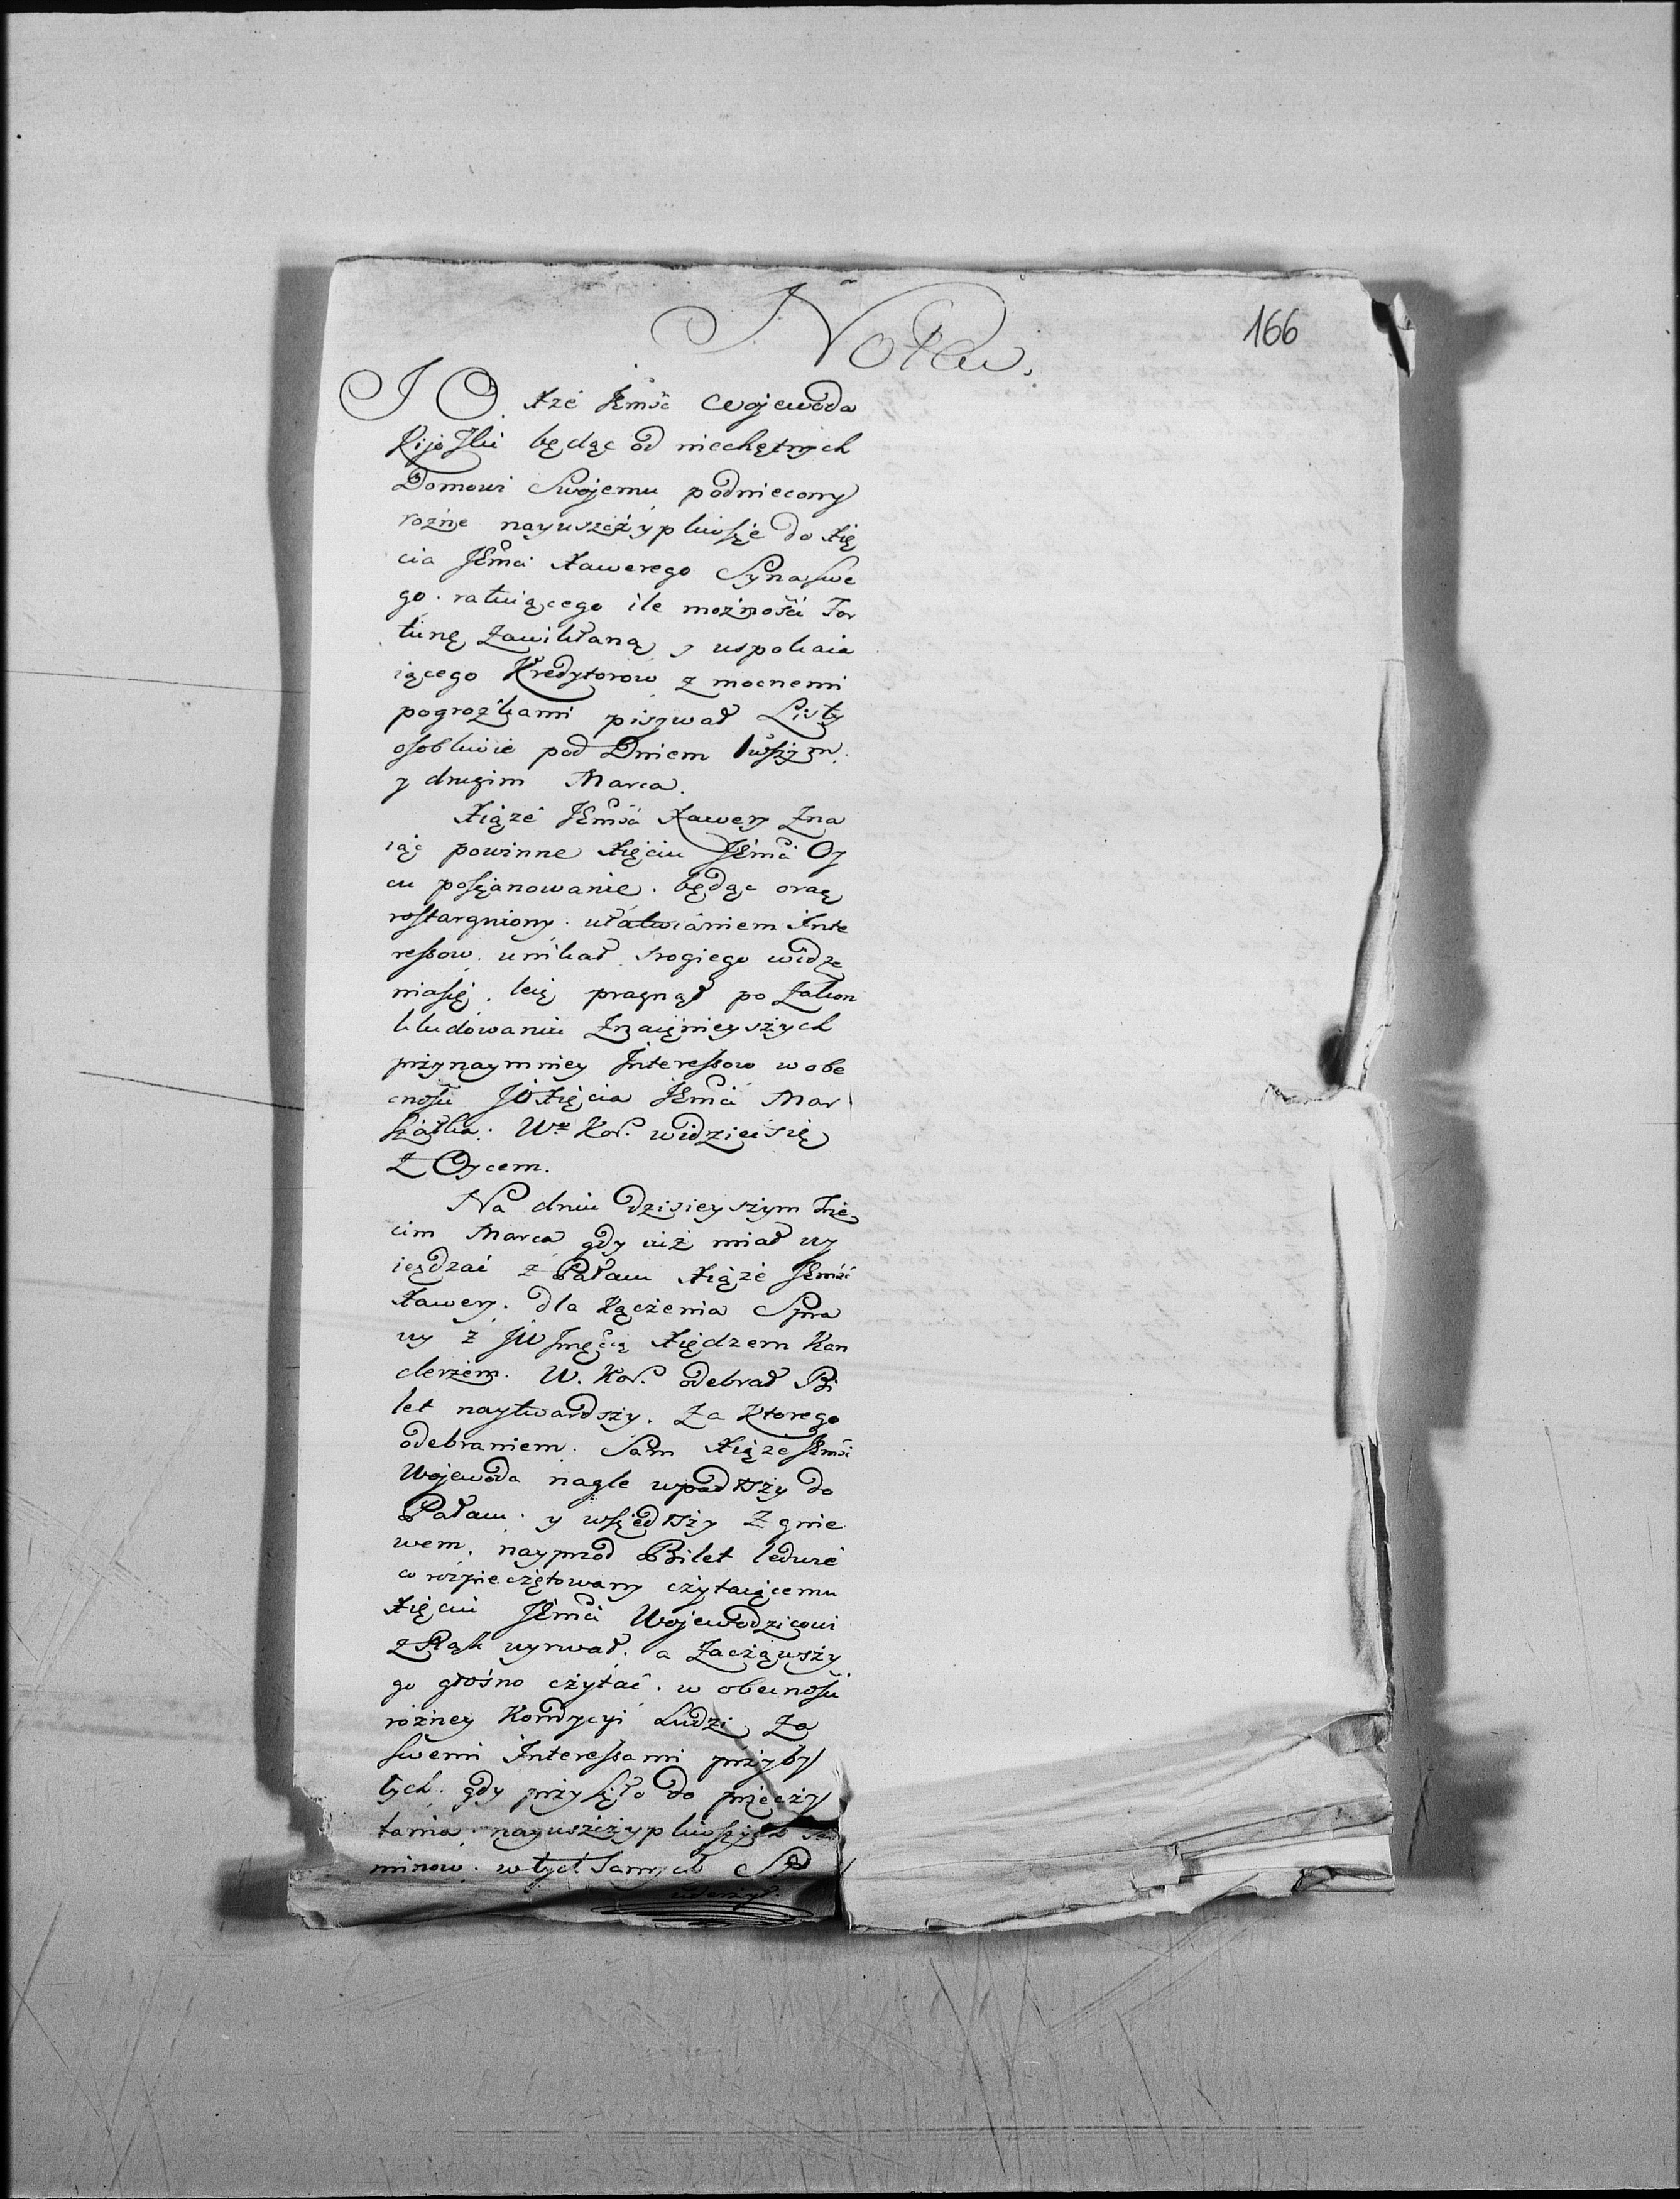 Nota.
166
J O. Xże Jegmść Wojewoda
Kijowski będąc od niechętnych
Domowi Swojemu podniecony
rożne nayuszczypliwsze do Xię
cia JEmci Xawerego Syna Swe
go. ratuiącego ile możności For
tunę Zawikłaną, y uspokaia
iącego Kredytorow z mocnemi
pogrożkami pisywał Listy
osobliwie pod Dniem 1wszym.
y drugim Marca.
Xiąże JEmść Xawery Zna
iąc powinne Xięciu JEmci Oy
cu poszanowanie. będąc oraz
rostargniony. ułatwianiem Inte
ressow. unikał srogiego widze
nia się. lecz pragnął po Zakon
kludowaniu Znacznieyszych
przynaymniey Interessow w obe
cności JO Xięcia JEmci Mar
szałka. W. Kor. widzieć się
Z Oycem.
Na dniu dzisieyszym Trze
cim Marca gdy iuż miał wy
ieżdzać z Pałacu Xiąże JEmść
Xawery. dla kączenia Spra
wy z JW Jmścią Xiędzem Kan
clerzem. W. Kor. odebrał Bi
let naytwardszy. Za Ktorego
odebraniem. Sam Xiąże JEmść
Wojewoda nagle wpadszy do
Pałacu. y wszedszy Z gnie
wem. nayprzod Bilet ledwie
co rozpieczętowany czytaiącemu
Xięciu JEmci Wojewodzicowi
z Rąk wyrwał. a Zacząwszy
go głośno czytać. w obecności
rożney Kondycyi Ludzi, Za
swemi Interessami przyby
łych. gdy przyszło do przeczy
tania. nayuszczypliwszych Ter
minow. w tych samych
uderzył.